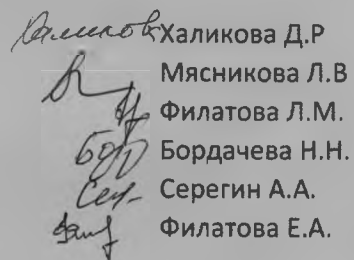 Халикова Д.Р
Мясникова Л.В
Филатова Л.М.
Бордачева Н.Н.
Серегин А.А.
Филатова Е.А.